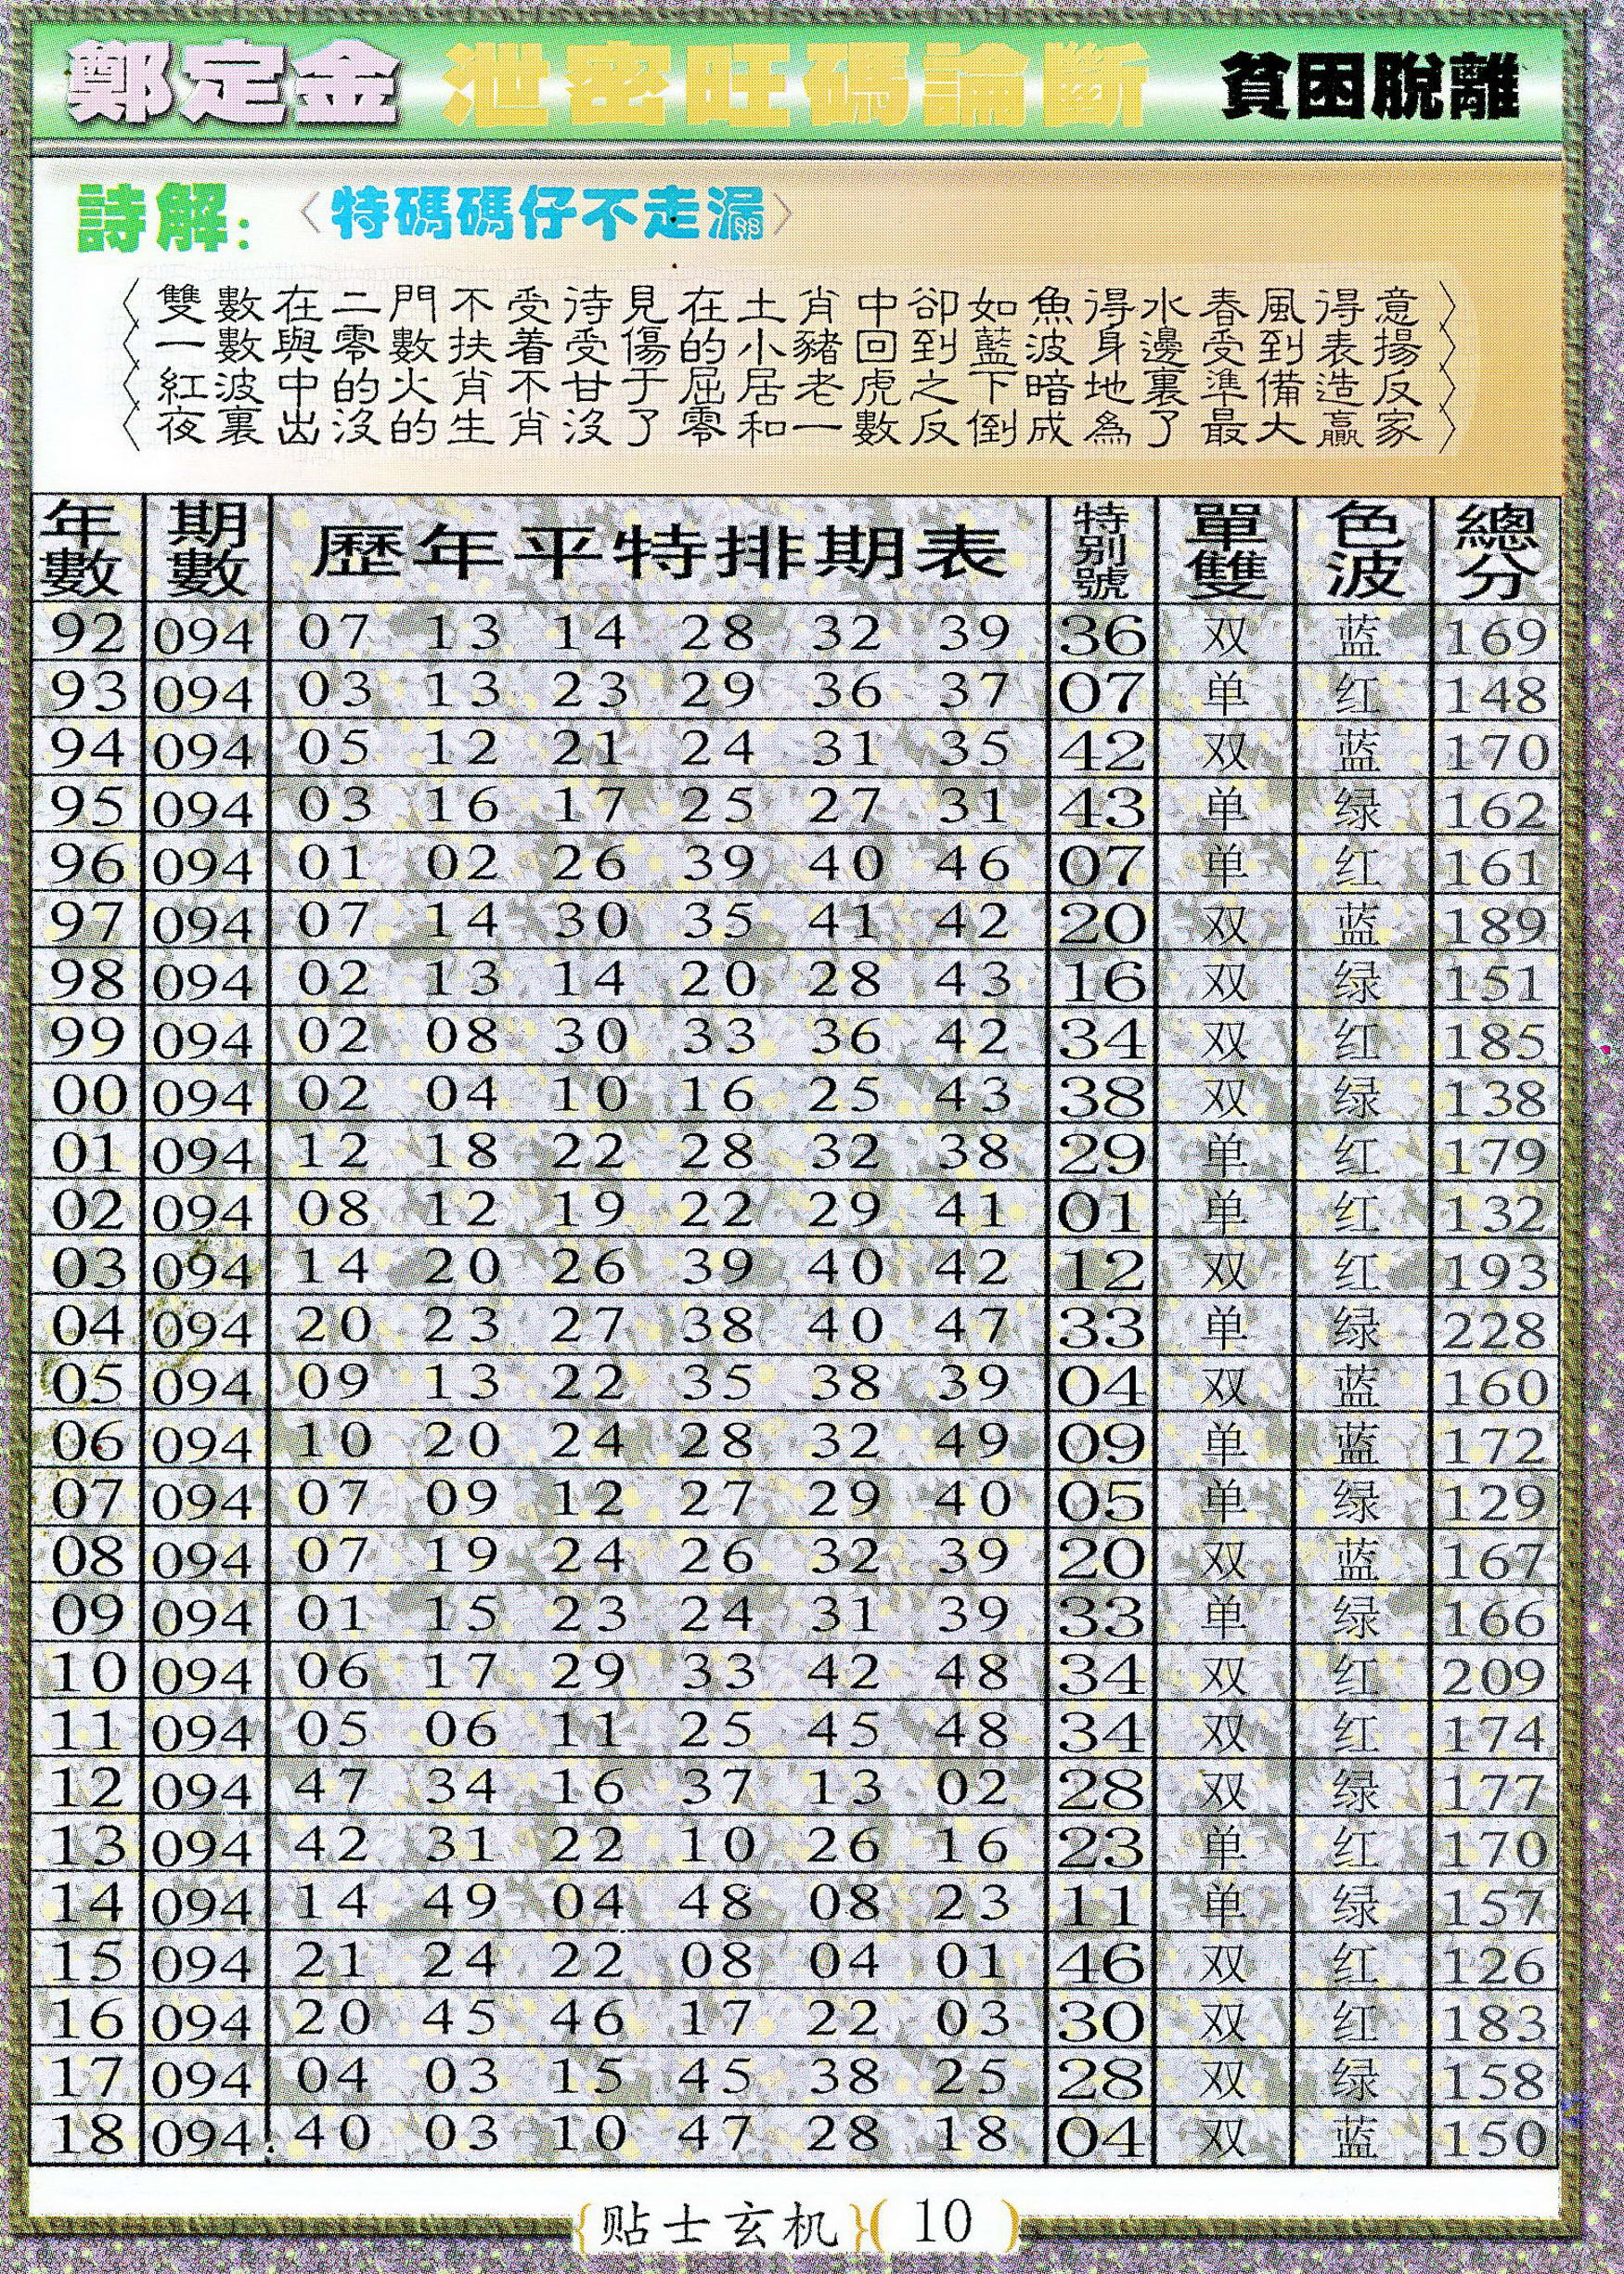 鄭定金 泄密旺碼論斷 貧困脫離
詩解:〈特碼碼仔不走漏〉
雙數在二門不受待見在土肖中卻如魚得水春風得意
一數與零數扶着受傷的小豬回到藍波身邊受到表揚
紅波中的火肖不甘于屈居老虎之下暗地裏準備造反
夜裏出沒的生肖沒了零和一數反倒成為了最大贏家
年數 期數 歷年平特排期表 特别號 單雙 色波 總分
92 094 07 13 14 28 32 39 36 双 蓝 169
93 094 03 13 23 29 36 37 07 单 红 148
94 094 05 12 21 24 31 35 42 双 蓝 170
95 094 03 16 17 25 27 31 43 单 绿 162
96 094 01 02 26 39 40 46 07 单 红 161
97 094 07 14 30 35 41 42 20 双 蓝 189
98 094 02 13 14 20 28 43 16 双 绿 151
99 094 02 08 30 33 36 42 34 双 红 185
00 094 02 04 10 16 25 43 38 双 绿 138
01 094 12 18 22 28 32 38 29 单 红 179
02 094 08 12 19 22 29 41 01 单 红 132
03 094 14 20 26 39 40 42 12 双 红 193
04 094 20 23 27 38 40 47 33 单 绿 228
05 094 09 13 22 35 38 39 04 双 蓝 160
06 094 10 20 24 28 32 49 09 单 蓝 172
07 094 07 09 12 27 29 40 05 单 绿 129
08 094 07 19 24 26 32 39 20 双 蓝 167
09 094 01 15 23 24 31 39 33 单 绿 166
10 094 06 17 29 33 42 48 34 双 红 209
11 094 05 06 11 25 45 48 34 双 红 174
12 094 47 34 16 37 13 02 28 双 绿 177
13 094 42 31 22 10 26 16 23 单 红 170
14 094 14 49 04 48 08 23 11 单 绿 157
15 094 21 24 22 08 04 01 46 双 红 126
16 094 20 45 46 17 22 03 30 双 红 183
17 094 04 03 15 45 38 25 28 双 绿 158
18 094 40 03 10 47 28 18 04 双 蓝 150
{贴士玄机}(10)